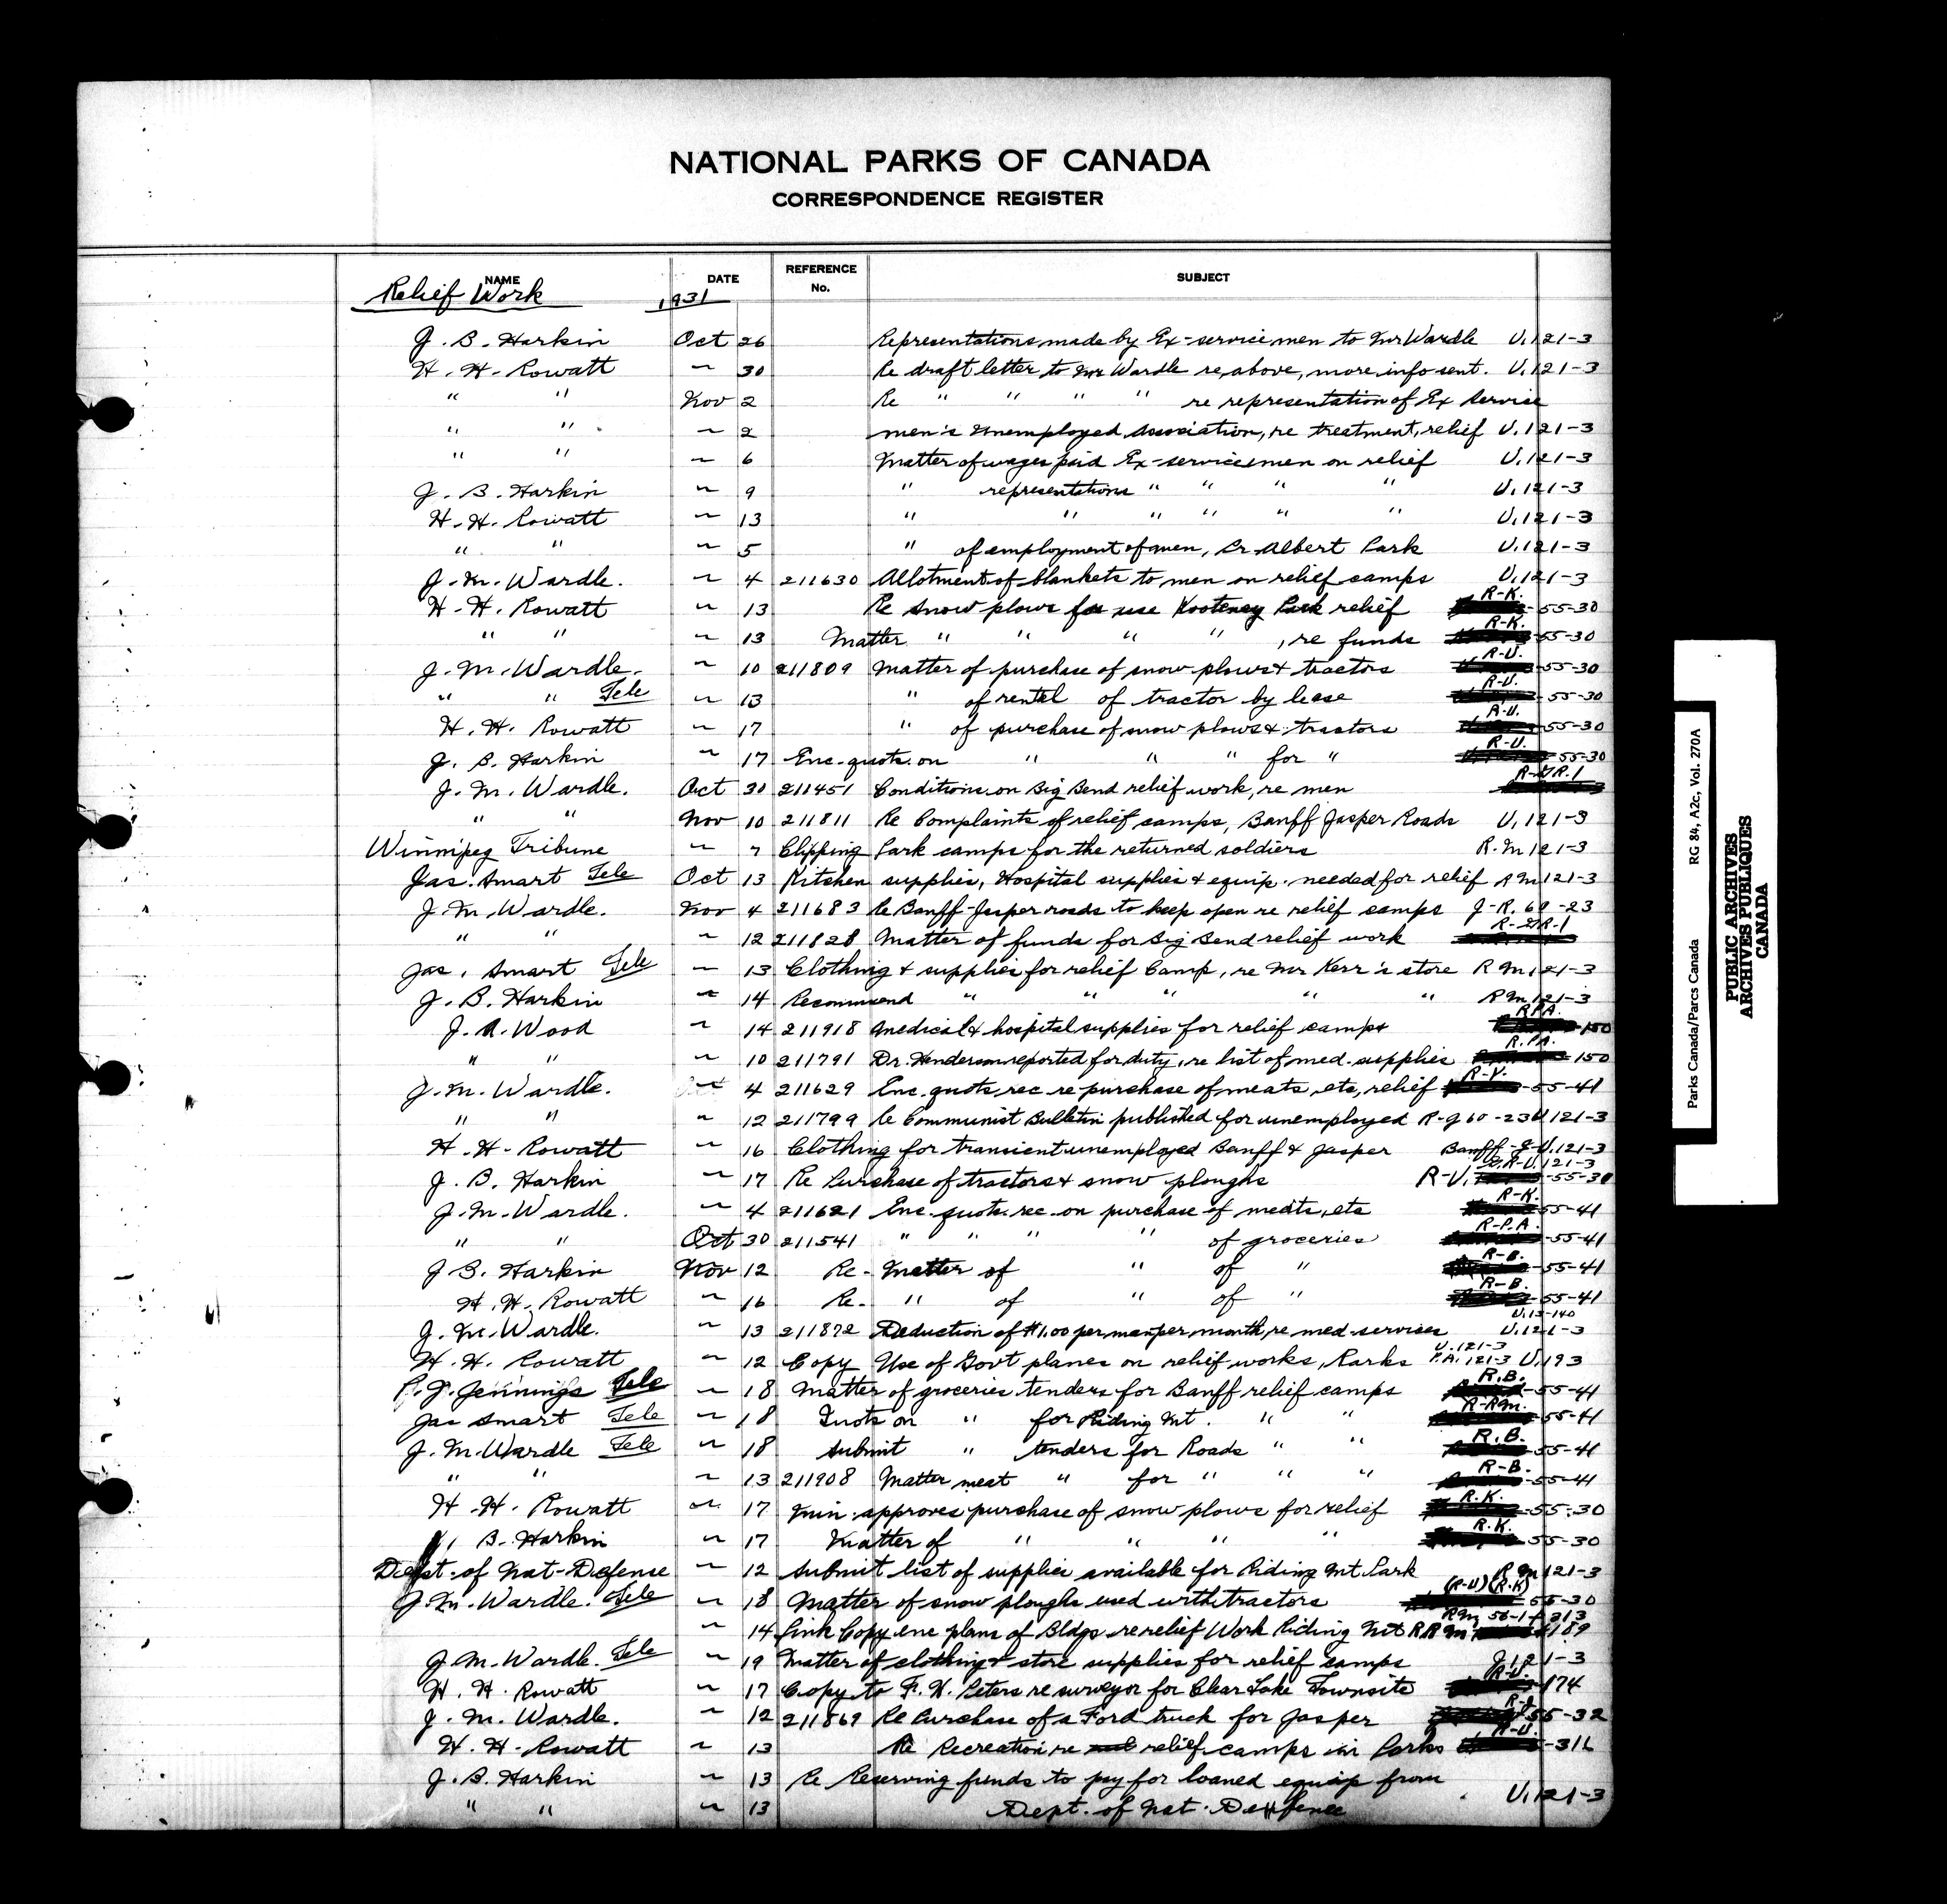 NATIONAL PARKS OF CANADA
CORRESPONDENCE REGISTER
NAME DATE REFERENCE No. SUBJECT
Relief Work 1931
J. B. Harkin Oct 26 Representations made by Ex-service men to Mr Wardle U.121-3
H. H. Rowatt " 30 Re draft letter to Mr Wardle re above, more info sent. U.121-3
" " Nov 2 Re " " " " re representation of Ex Service
" " " 2 men's Unemployed Association, re treatment, relief U.121-3
" " " 6 Matter of wages paid Ex-servicemen on relief U.121-3
J. B. Harkin " 9 " representations " " " " U.121-3
H. H. Rowatt " 13 " " " " " " U.121-3
" " " 5 " of employment of men, Pr Albert Park U.121-3
J. M. Wardle. " 4 211630 Allotment of blankets to men on relief camps U.121-3
H. H. Rowatt " 13 Re snow plows for use Kooteney Park relief R-K. 55-30
" " " 13 Matter " " " " , re funds R-K. 55-30
J. M. Wardle. " 10 211809 Matter of purchase of snow plows & tractors R-U. 55-30
" " Tele " 13 " of rental of tractor by lease R-U. 55-30
H. H. Rowatt " 17 " of purchase of snow plows & tractors R-U. 55-30
J. B. Harkin " 17 Enc. quots. on " " " for " R-U. 55-30
J. M. Wardle. Oct 30 211451 Conditions on Big Bend relief work, re men
" " Nov 10 211811 Re Complaints of relief camps, Banff Jasper Roads U.121-3
Winnipeg Tribune " 7 Clipping Park camps for the returned soldiers R.M 121-3
Jas. Smart Tele Oct 13 Kitchen supplies, Hospital supplies & equip. needed for relief R M 121-3
J. M. Wardle. Nov 4 211683 Re Banff-Jasper roads to keep open re relief camps J-R. 60-23
" " " 12 211828 Matter of funds for Big Bend relief work
Jas. Smart Tele " 13 Clothing & supplies for relief Camp, re Mr Kerr's store R M 121-3
J. B. Harkin " 14 Recommend " " " " " R M 121-3
J. A. Wood " 14 211918 Medical & hospital supplies for relief camps R P.A. 150
" " " 10 211791 Dr. Henderson reported for duty, re list of med. supplies R.P.A. 150
J. M. Wardle. 4 211629 Enc. quots rec re purchase of meats, etc, relief R-Y. 55-41
" " " 12 211799 Re Communist Bulletin published for unemployed R-J 60-23 U 121-3
H. H. Rowatt " 16 Clothing for transient unemployed Banff & Jasper Banff-J-U.121-3
J. B. Harkin " 17 Re Purchase of tractors & snow ploughs R-U. 55-30
J. M. Wardle. " 4 211621 Enc. quots. rec. on purchase of meats, etc R-K. 55-41
" " Oct 30 211541 " " " " of groceries R-P.A. 55-41
J B. Harkin Nov 12 Re- Matter of " of " R-B. 55-41
H. H. Rowatt " 16 Re. " of " of " R-B. 55-41
J. M. Wardle. " 13 211872 Deduction of $1.00 per man per month, re med-services U.121-3
H. H. Rowatt " 12 Copy Use of Govt planes on relief works, Parks U.121-3 P.A. 121-3 U.193
P. J. Jennings Tele " 18 Matter of groceries tenders for Banff relief camps R.B. 55-41
Jas Smart Tele " 18 Quots on " for Riding Mt. " " R-RM. 55-41
J. M. Wardle Tele " 18 Submit " tenders for Roads " " R.B. 55-41
" " " 13 211908 Matter meat " for " " " R-B. 55-41
H. H. Rowatt " 17 Min. approves purchase of snow plows for relief R.K. 55-30
B. Harkin " 17 Matter of " " " " R.K. 55-30
Dept. of Nat-Defense " 12 Submit list of supplies available for Riding Mt. Park R M 121-3
J. M. Wardle. Tele " 18 Matter of snow ploughs used with tractors (R-U) (R.K) 55-30
" 14 Pink Copy enc plans of Bldgs re relief Work Riding Mt
J. M. Wardle. Tele " 19 Matter of clothing & store supplies for relief camps J 121-3
H. H. Rowatt " 17 Copy to F. H. Peters re surveyor for Clear Lake Townsite R-U. 174
J. M. Wardle. " 12 211869 Re Purchase of a Ford truck for Jasper R-J 55-32
H. H. Rowatt " 13 Re Recreation re relief camps in Parks R-U.
J. B. Harkin " 13 Re Reserving funds to pay for loaned equip from
" " " 13 Dept. of Nat. Deffence U.121-3
Parks Canada/Parcs Canada RG 84, A2c, Vol. 270A
PUBLIC ARCHIVES
ARCHIVES PUBLIQUES
CANADA